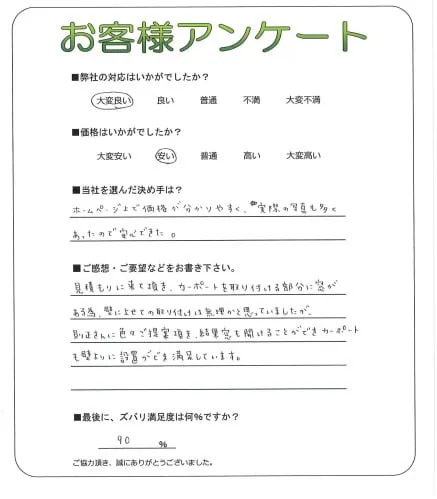 お客様アンケート
■弊社の対応はいかがでしたか？
大変良い 良い 普通 不満 大変不満
■価格はいかがでしたか？
大変安い 安い 普通 高い 大変高い
■当社を選んだ決め手は？
ホームページ上で価格が分かりやすく、実際の写真も多く
あったので安心できた。
■ご感想・ご要望などをお書き下さい。
見積もりに来て頂き、カーポートを取り付ける部分に窓が
ある為、壁によせての取り付けは無理かと思っていましたが、
さんに色々ご提案頂き、結果窓も開けることができカーポート
も壁よりに設置ができ満足しています。
■最後に、ズバリ満足度は何%ですか？
90 %
ご協力頂き、誠にありがとうございました。